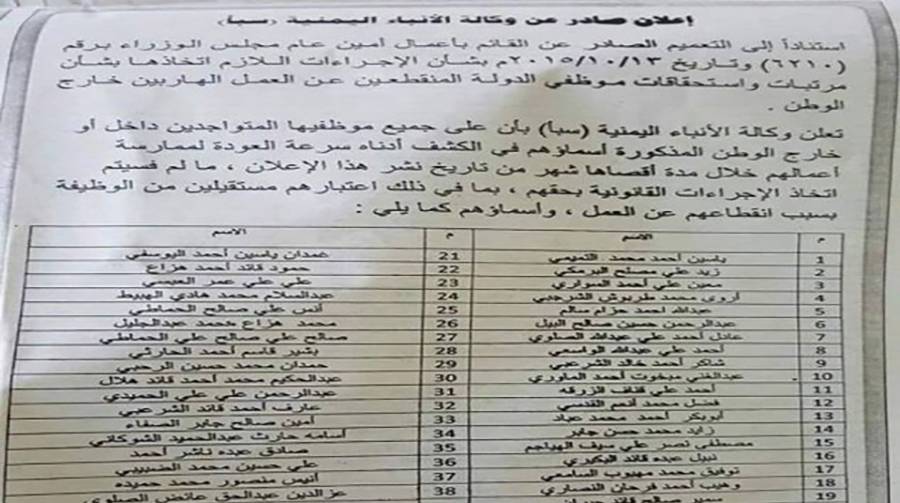 إعلان صادر عن وكالة الأنباء اليمنية (سبأ)
استناداً إلى التعميم الصادر عن القائم بأعمال أمين عام مجلس الوزراء برقم
(٦٢١٠) وتاريخ ٢٠١٥/١٠/١٣م بشأن الإجراءات اللازم اتخاذها بشأن
مرتبات واستحقاقات موظفي الدولة المنقطعين عن العمل الهاربين خارج
الوطن .
تعلن وكالة الأنباء اليمنية (سبأ) بأن على جميع موظفيها المتواجدين داخل أو
خارج الوطن المذكورة أسماؤهم في الكشف أدناه سرعة العودة لممارسة
أعمالهم خلال مدة أقصاها شهر من تاريخ نشر هذا الإعلان ، ما لم فسيتم
اتخاذ الإجراءات القانونية بحقهم ، بما في ذلك اعتبارهم مستقيلين من الوظيفة
بسبب انقطاعهم عن العمل ، وأسماؤهم كما يلي :
م الاسم م الاسم
1 ياسين أحمد محمد التميمي 21 غمدان ياسين أحمد اليوسفي
2 زيد علي مصلح البرمكي 22 حمود قائد أحمد هزاع
3 معين علي أحمد السواري 23 علي علي عمر العيسي
4 أروى محمد طربوش الشرجبي 24 عبدالسلام محمد هادي الهبيط
5 عبدالله احمد حزام سالم 25 أنس علي صالح الحماطي
6 عبدالرحمن حسين صالح النيل 26 محمد هزاع محمد عبدالجليل
7 عادل أحمد علي عبدالله الصلوي 27 صالح علي صالح علي الحماطي
8 أحمد علي عبدالله الواسعي 28 بشير قاسم أحمد الحارثي
9 شاكر أحمد خالد الشرعبي 29 حمدان محمد حسين الرحبي
10 عبدالغني مبخوت أحمد الماوري 30 عبدالحكيم محمد أحمد قائد هلال
11 أحمد علي قناف الزرقه 31 عبدالرحمن علي علي الحميدي
12 فضل محمد أنعم القدسي 32 عارف أحمد قائد الشرعبي
13 أبوبكر أحمد محمد عباد 33 أمين صالح جابر الصفاء
14 زايد محمد حسن جابر 34 أسامه حارث عبدالحميد الشوكاني
15 مصطفى نصر علي سيف الهياجم 35 صادق عبده ناشر أحمد
16 نبيل عبده قائد البكيري 36 علي حسين محمد الضبيبي
17 توفيق محمد مهيوب السامعي 37 أنيس منصور محمد حميده
18 وهيب أحمد فرحان النصاري 38 عزالدين عبدالحق عائض الصلوي
19 سمير صالح قائد